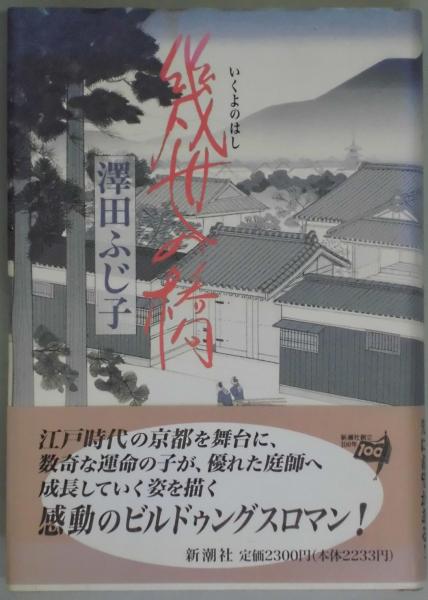 幾世の橋
いくよのはし
澤田ふじ子
江戸時代の京都を舞台に、
数奇な運命の子が、優れた庭師へ
成長していく姿を描く
感動のビルドゥングスロマン!
新潮社創立
100年
100
新潮社 定価2300円(本体2233円)